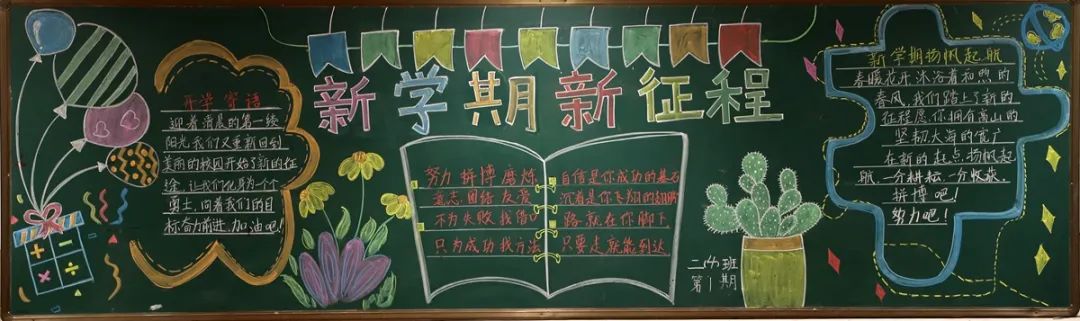 新学期新征程
开学寄语
迎着清晨的第一缕
阳光,我们又重新回到
美丽的校园开始了新的征
途,让我们化身为一个个
勇士,向着我们的目
标奋力前进,加油吧!
努力 拼搏 磨炼
意志 团结 友爱
不为失败找借口
只为成功找方法
自信是你成功的基石
沉着是你飞翔的翅膀
路就在你脚下
只要走就能到达
二(4)班
第1期
新学期扬帆起航
春暖花开,沐浴着和煦的
春风,我们踏上了新的
征程愿你拥有高山的
坚韧大海的宽广
在新的起点,扬帆起
航,一分耕耘一分收获,
拼搏吧!
努力吧!